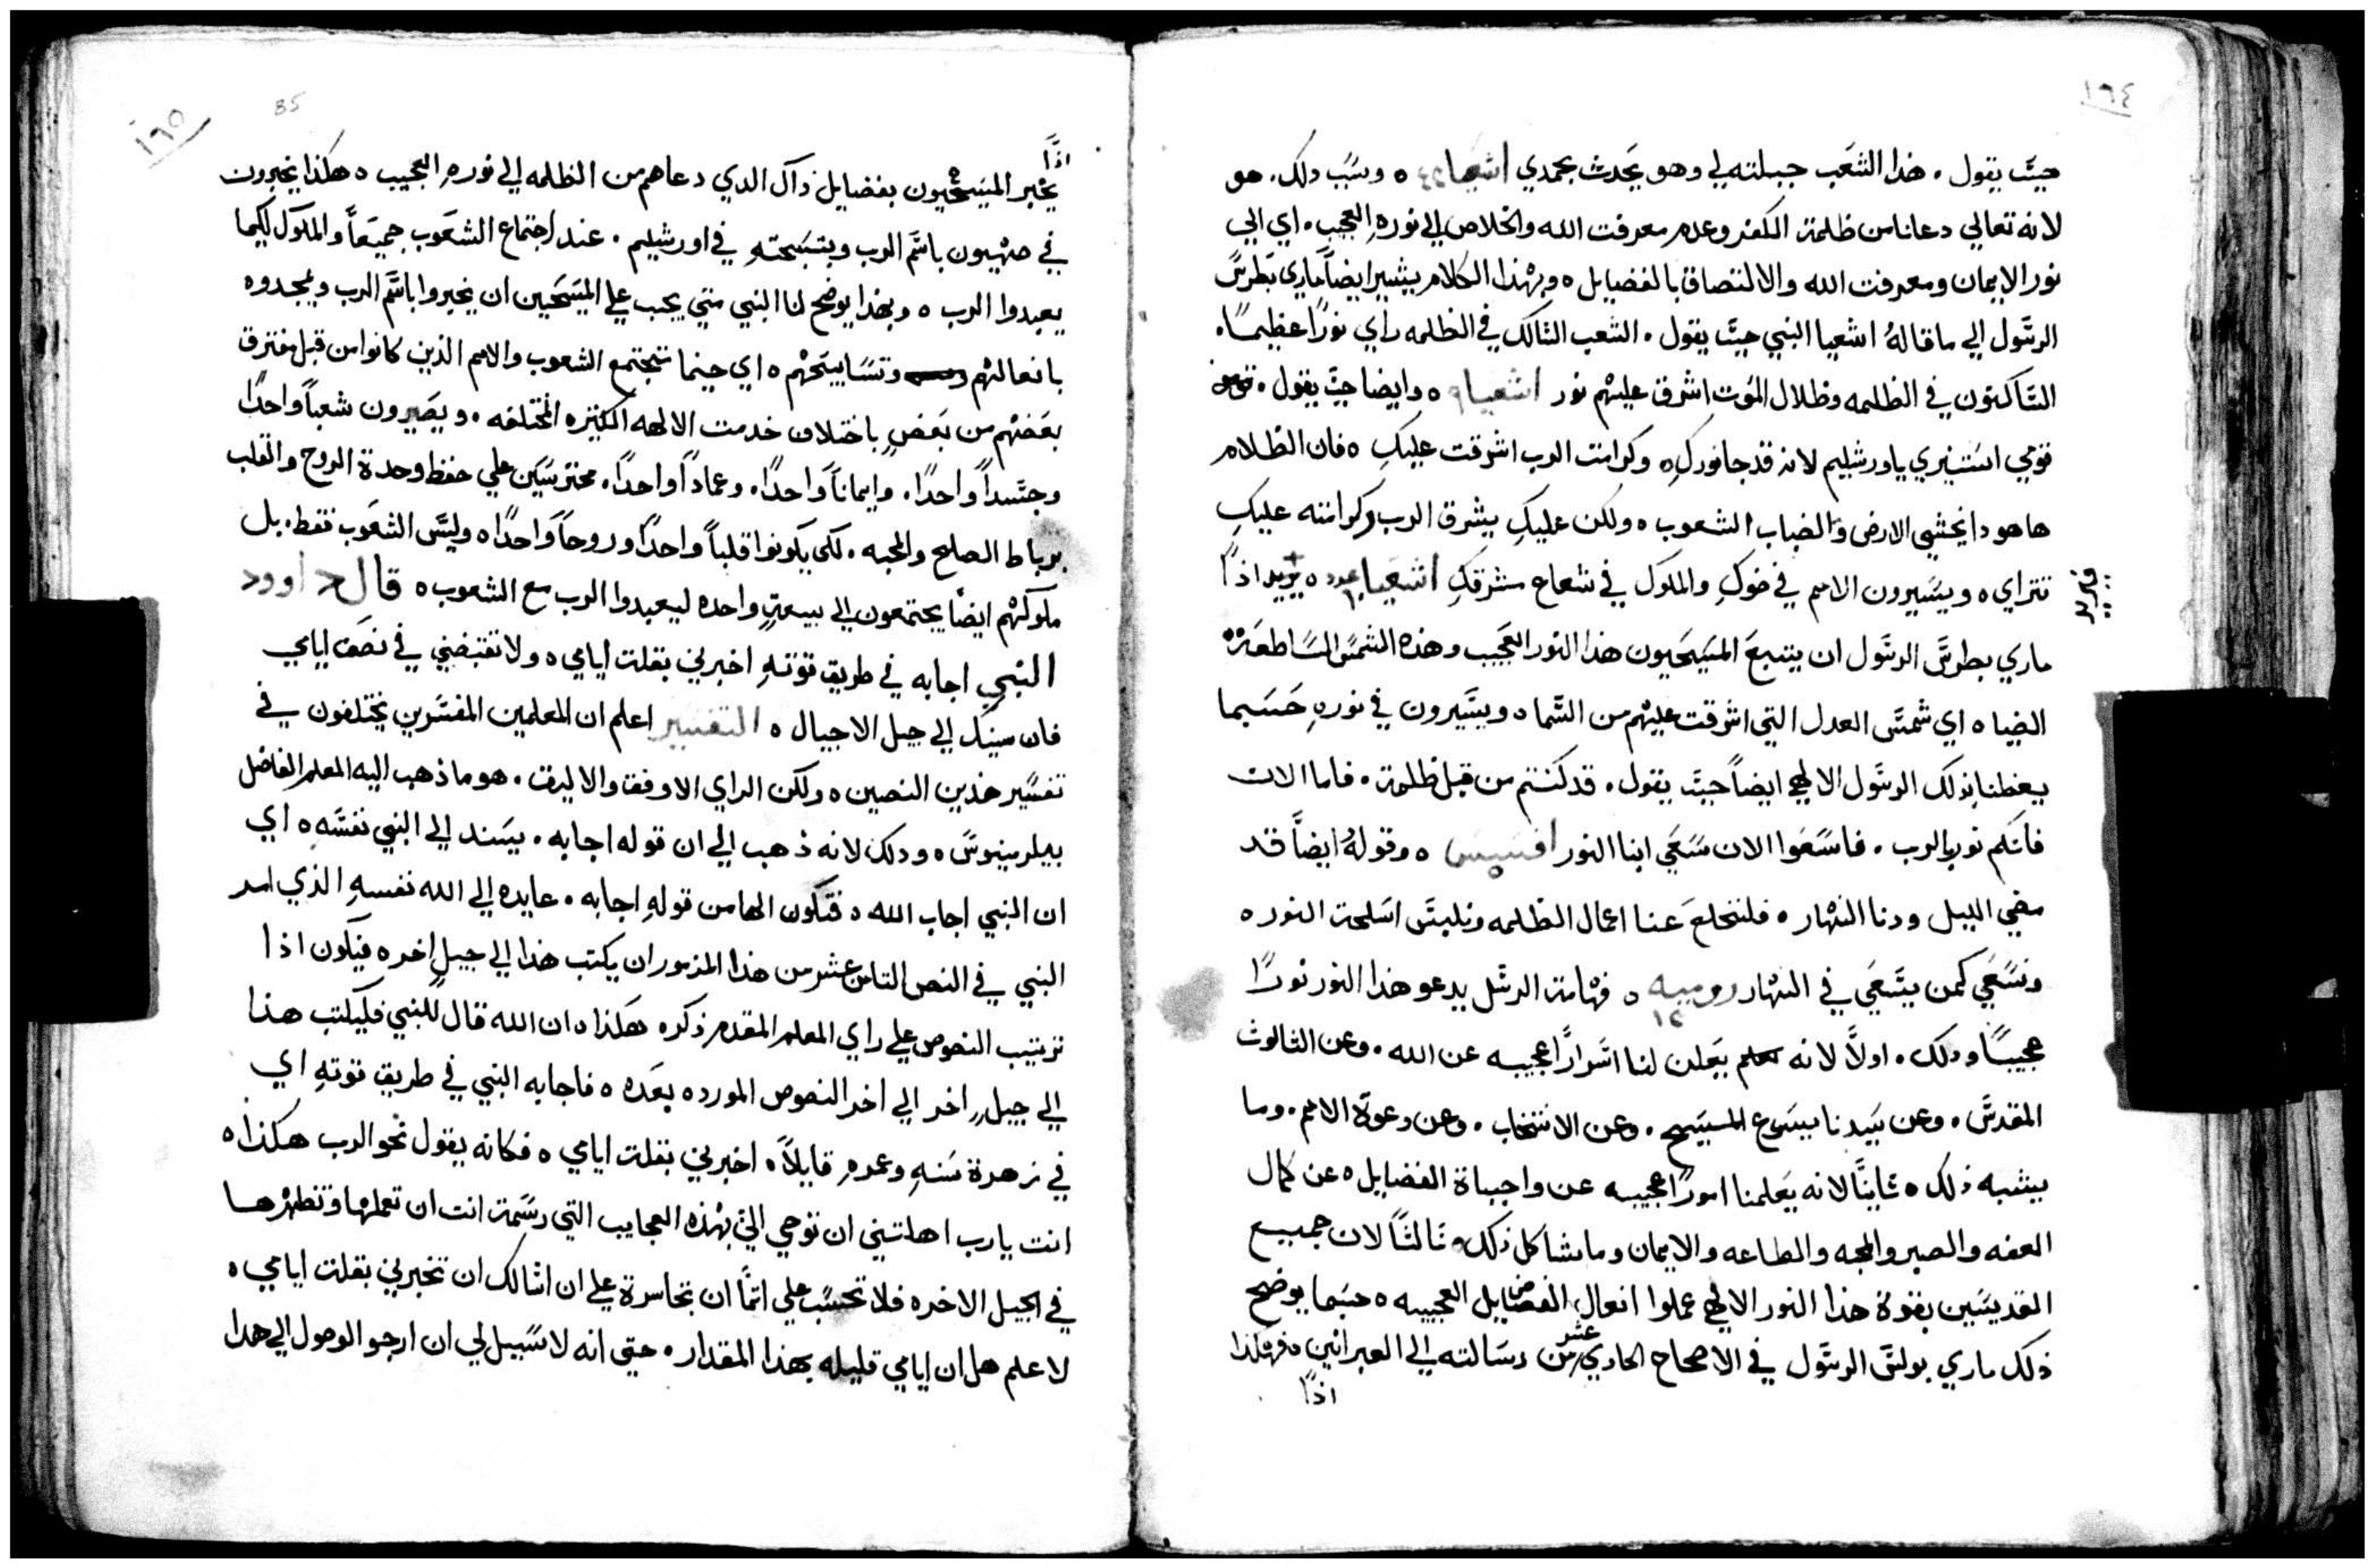 ١٦٤
حيث يقول . هذا الشعب جبلته لي وهو يحدث بحمدي اشعيا ٤٣ ٥ وسبب دلك . هو
لانه تعالي دعانا من ظلمة الكفر وعدم معرفت الله والخلاص الي نوره العجيب . اي الي
نور الايمان ومعرفت الله والالتصاق بالفضايل ٥ وبهذا الكلام يشير ايضاً ماري بطرس
الرسول الي ما قاله اشعيا النبي حيث يقول . الشعب السالك في الظلمه راي نورًا عظيمًا .
الساكنون في الظلمه وظلال الموت اشرق عليهم نور اشعيا ٩ ٥ وايضا حيث يقول .
قومي استنيري ياورشليم لانه قد جا نورك ٥ وكرامت الرب اشرقت عليكِ ٥ فان الظلام
هاهودا يغشي الارض والضباب الشعوب ٥ ولكن عليكِ يشرق الرب وكرامته عليكِ
تتراي ٥ ويسيرون الامم في ضوكِ والملوك في شعاع مشرقكِ اشعيا عدد ٥ يريد اذًا
ماري بطرس الرسول ان يتبع المسيحيون هذا النور العجيب وهذه الشمس الساطعة
الضيا ٥ اي شمس العدل التي اشرقت عليهم من السما ٥ ويسيرون في نورهِ حسبما
يعظنا بذلك الرسول الالهي ايضاً حيث يقول . قد كنتم من قبل ظلمة . فاما الان
فانكم نور بالرب . فاسعوا الان سعي ابنا النور افسس ٥ ٥ وقوله ايضاً قد
مضي الليل ودنا النهار ٥ فلنخلع عنا اعمال الظلمه ونلبس اسلحة النور ٥
ونسعي كمن يسعي في النهار روميه ١٣ ٥ فهامة الرسل يدعو هذا النور نورًا
عجيبًا ودلك . اولاً لانه يعلن لنا اسرارًا عجيبه عن الله . وعن الثالوث
المقدس . وعن سيدنا يسوع المسيح . وعن الانتخاب . وعن دعوة الامم . وما
يشبه ذلك ٥ ثانيًا لانه يعلمنا امورًا عجيبه عن واجباة الفضايل ٥ عن كمال
العفه والصبر والمحبه والطاعه والايمان وما شاكل ذلك ٥ ثالثًا لان جميع
القديسين بقوة هذا النور الالهي عملوا افعال الفضايل العجيبه ٥ حسبما يوضح
ذلك ماري بولس الرسول في الاصحاح الحادي عشر من رسالته الي العبرانين ٥ فهكذا
اذًا
١٦٥
85
اذًا
يخبر المسيحيون بفضايل ذاك الدي دعاهم من الظلمه الي نورهِ العجيب ٥ هكذا يخبرون
في صهيون باسم الرب وبتسبحتهِ في اورشليم . عند اجتماع الشعوب جميعاً والملوك لكيما
يعبدوا الرب ٥ وبهذا يوضح لنا النبي متي يجب علي المسيحين ان يخبروا باسم الرب ويمجدوه
بافعالهم وتسابيحهم ٥ اي حينما تجتمع الشعوب والامم الذين كانوا من قبل مفترق
بعضهم من بعضِ باختلاف خدمت الالهه الكثيره المختلفه . ويصيرون شعباً واحدًا
وجسداً واحدًا . وايماناً واحدًا . وعماداً واحدًا . محترسين علي حفظ وحدة الروح والقلب
برباط الصلح والمحبه . لكي يكونوا قلباً واحدًا وروحاً واحدًا ٥ وليس الشعوب فقط . بل
ملوكهم ايضًا يجتمعون الي بيعةٍ واحده ليعبدوا الرب مع الشعوب ٥ قال داوود
النبي اجابه في طريق قوتهِ اخبرني بقلت ايامي ٥ ولا تقتبضني في نصف ايامي
فان سنيك الي جيل الاجيال ٥ التفسير اعلم ان المعلمين المفسرين يختلفون في
تفسير هذين النصين ٥ ولكن الراي الاوفق والاليق . هو ما ذهب اليه المعلم الفاضل
بيلرمينوس ٥ ودلك لانه ذهب الي ان قوله اجابه . يسند الي النبي نفسه ٥ اي
ان النبي اجاب الله ٥ فتكون الها من قولهِ اجابه . عايده الي الله نفسهِ الذي امر
النبي في النص الثامن عشر من هذا المزمور ان يكتب هذا الي جيلِ اخر ٥ فيكون اذا
ترتيب النصوص علي راي المعلم المقدم ذكره هكذا ٥ ان الله قال للنبي فليكتب هذا
الي جيلٍ اخر الي اخر النصوص المورده بعده ٥ فاجابه النبي في طريق قوتهِ اي
في زهرة سنهِ وعمرهِ قايلاً . اخبرني بقلت ايامي ٥ فكانه يقول نحو الرب هكذا ٥
انت يارب اهلتني ان توحي الي بهذه العجايب التي رسمة انت ان تعملها وتظهرها
في الجيل الاخر ٥ فلا تحسب علي اثمًا ان تجاسرة علي ان اسالك ان تخبرني بقلت ايامي ٥
لاعلم هل ان ايامي قليله بهذا المقدار . حتي انه لا سبيل لي ان ارجو الوصول الي هدا